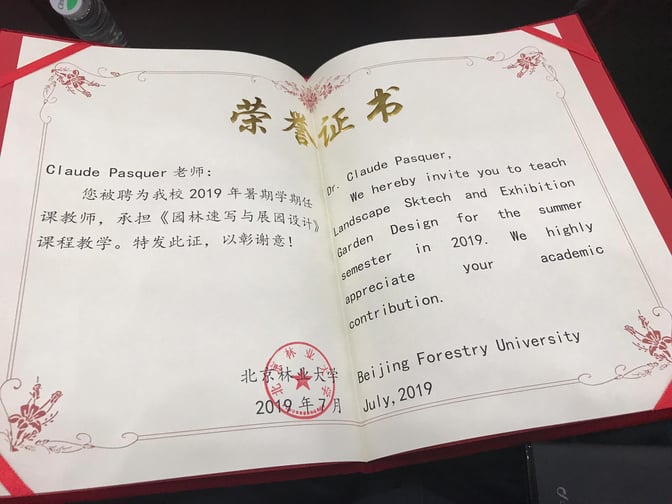 荣誉证书
Claude Pasquer 老师：
您被聘为我校 2019 年暑期学期任
课教师，承担《园林速写与展园设计》
课程教学。特发此证，以彰谢意！
北京林业大学
2019 年 7 月
北京林业大学
Dr. Claude Pasquer,
We hereby invite you to teach
Landscape Sktech and Exhibition
Garden Design for the summer
semester in 2019. We highly
appreciate your academic
contribution.
Beijing Forestry University
July,2019